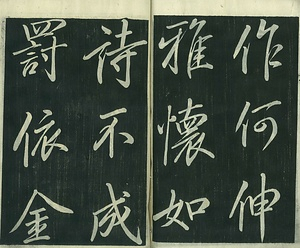 作何伸
雅懷如
詩不成
罰依金